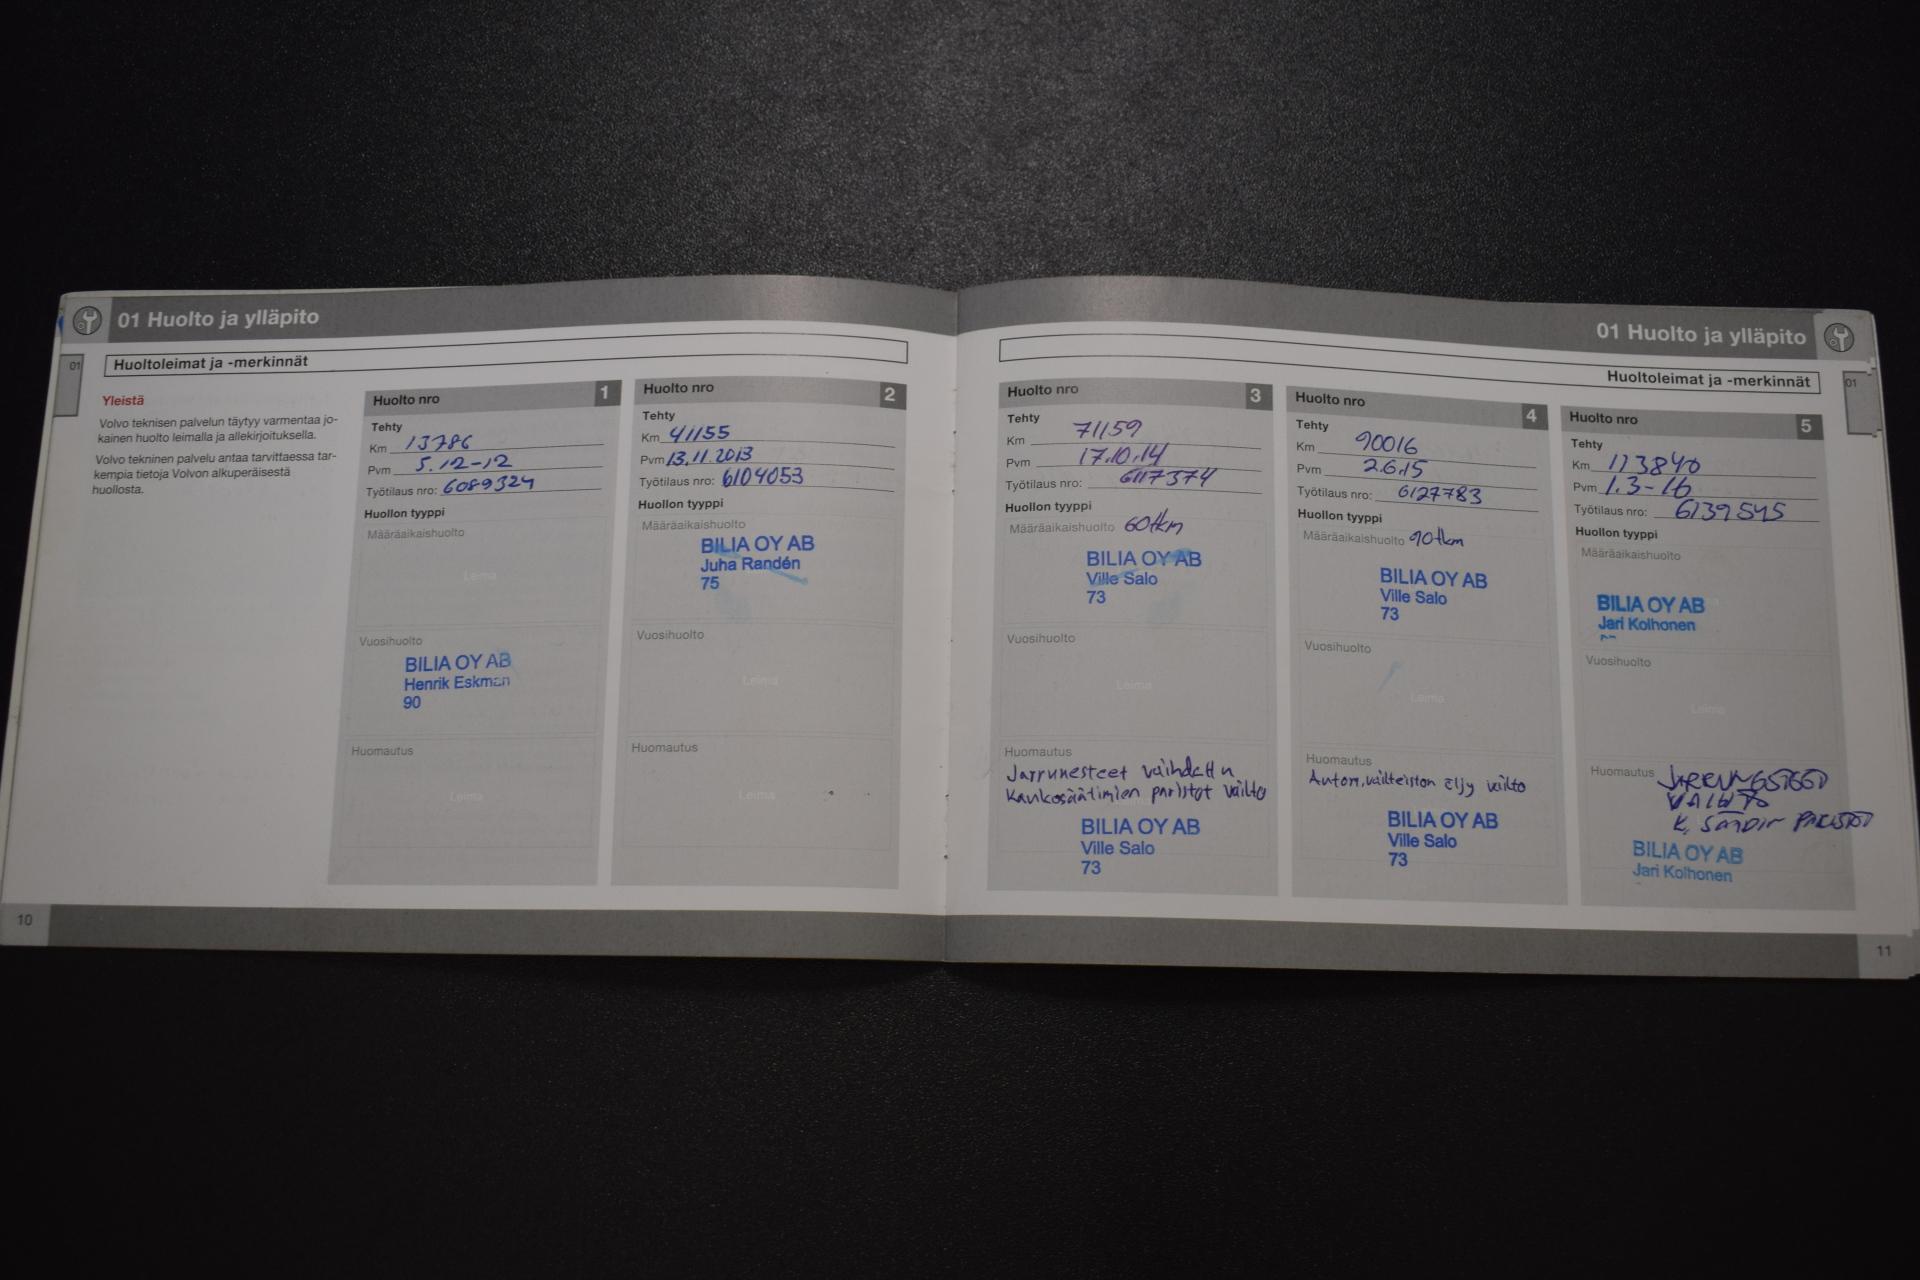 01 Huolto ja ylläpito
01
Huoltoleimat ja -merkinnät
Yleistä
Volvo teknisen palvelun täytyy varmentaa jo-
kainen huolto leimalla ja allekirjoituksella.
Volvo tekninen palvelu antaa tarvittaessa tar-
kempia tietoja Volvon alkuperäisestä
huollosta.
Huolto nro 1
Tehty
Km 13786
Pvm 5.12-12
Työtilaus nro: 6089324
Huollon tyyppi
Määräaikaishuolto
Leima
Vuosihuolto
BILIA OY AB
Henrik Eskman
90
Huomautus
Leima
Huolto nro 2
Tehty
Km 41155
Pvm 13.11.2013
Työtilaus nro: 6104053
Huollon tyyppi
Määräaikaishuolto
BILIA OY AB
Juha Randén
75
Vuosihuolto
Leima
Huomautus
Leima
10
01 Huolto ja ylläpito
Huoltoleimat ja -merkinnät
01
Huolto nro 3
Tehty
Km 71159
Pvm 17.10.14
Työtilaus nro: 6117374
Huollon tyyppi
Määräaikaishuolto 60tkm
BILIA OY AB
Ville Salo
73
Vuosihuolto
Leima
Huomautus
Jarrunesteet vaihdettu
Kaukosäätimien paristot vaihto
BILIA OY AB
Ville Salo
73
Huolto nro 4
Tehty
Km 90016
Pvm 2.6.15
Työtilaus nro: 6127783
Huollon tyyppi
Määräaikaishuolto 90tkm
BILIA OY AB
Ville Salo
73
Vuosihuolto
Leima
Huomautus
Autom.vaihteiston öljy vaihto
BILIA OY AB
Ville Salo
73
Huolto nro 5
Tehty
Km 113840
Pvm 1.3-16
Työtilaus nro: 6139545
Huollon tyyppi
Määräaikaishuolto
BILIA OY AB
Jari Kolhonen
Vuosihuolto
Leima
Huomautus
BILIA OY AB
Jari Kolhonen
11